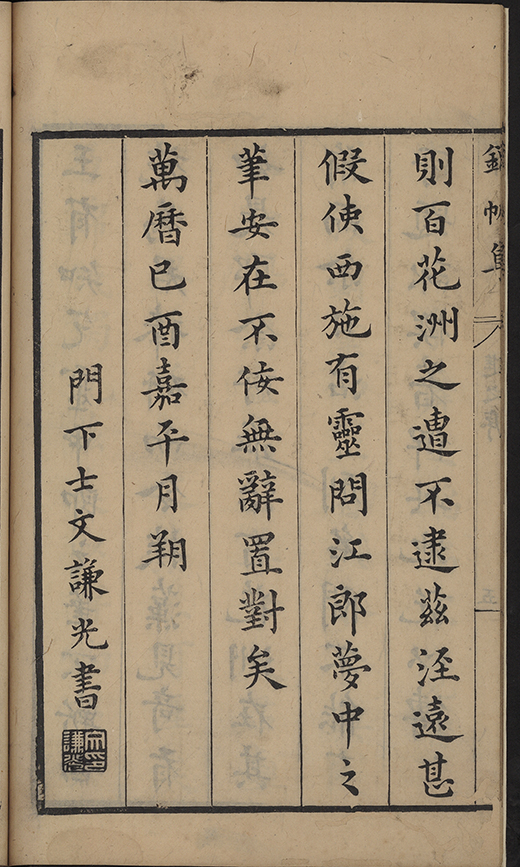 則百花洲之遭不逮茲溼遠甚
假使西施有靈問江郎夢中之
筆安在不佞無辭置對矣
萬曆己酉嘉平月朔
門下士文謙光書